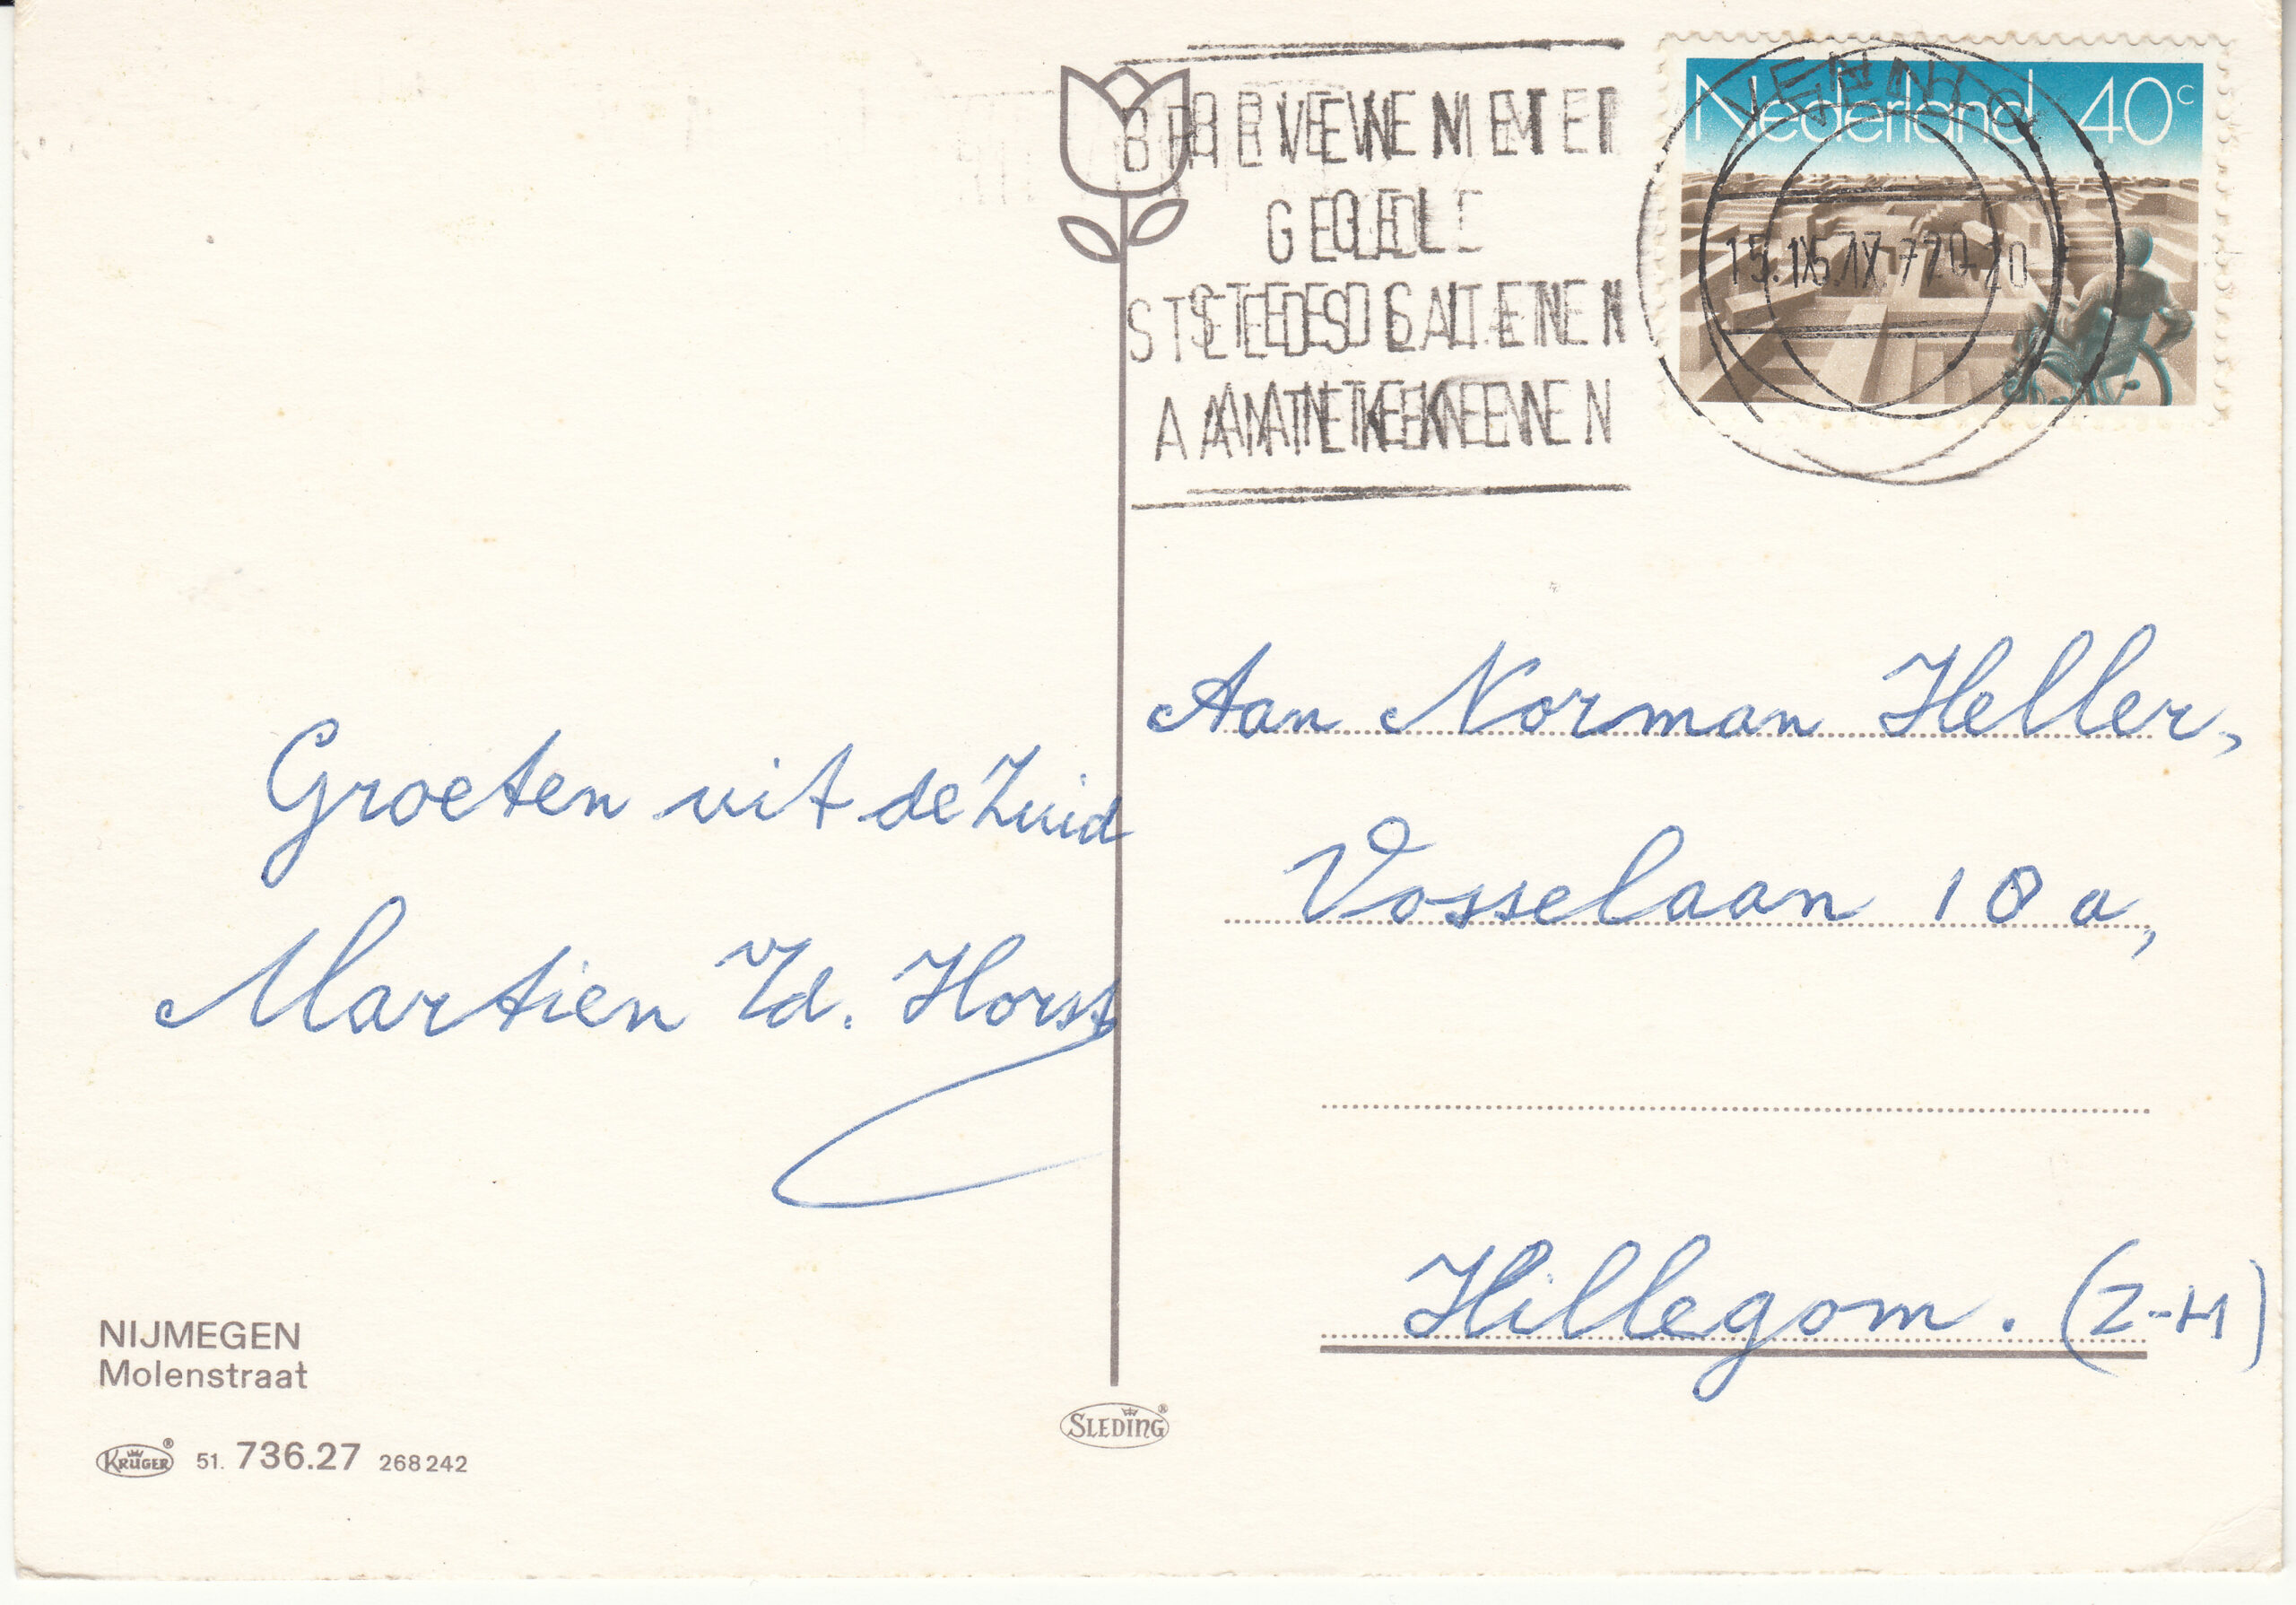 BRIEVEN MET
GELD
STEEDS LATEN
AANTEKENEN
VENLO
15.IX.77-20
Nederland 40c
Groeten uit de Zuid
Martien v/d. Horst
Aan Norman Heller,
Vosselaan 10 a,
Hillegom. (Z-H)
NIJMEGEN
Molenstraat
KRÜGER® 51. 736.27 268242
SLEDING®